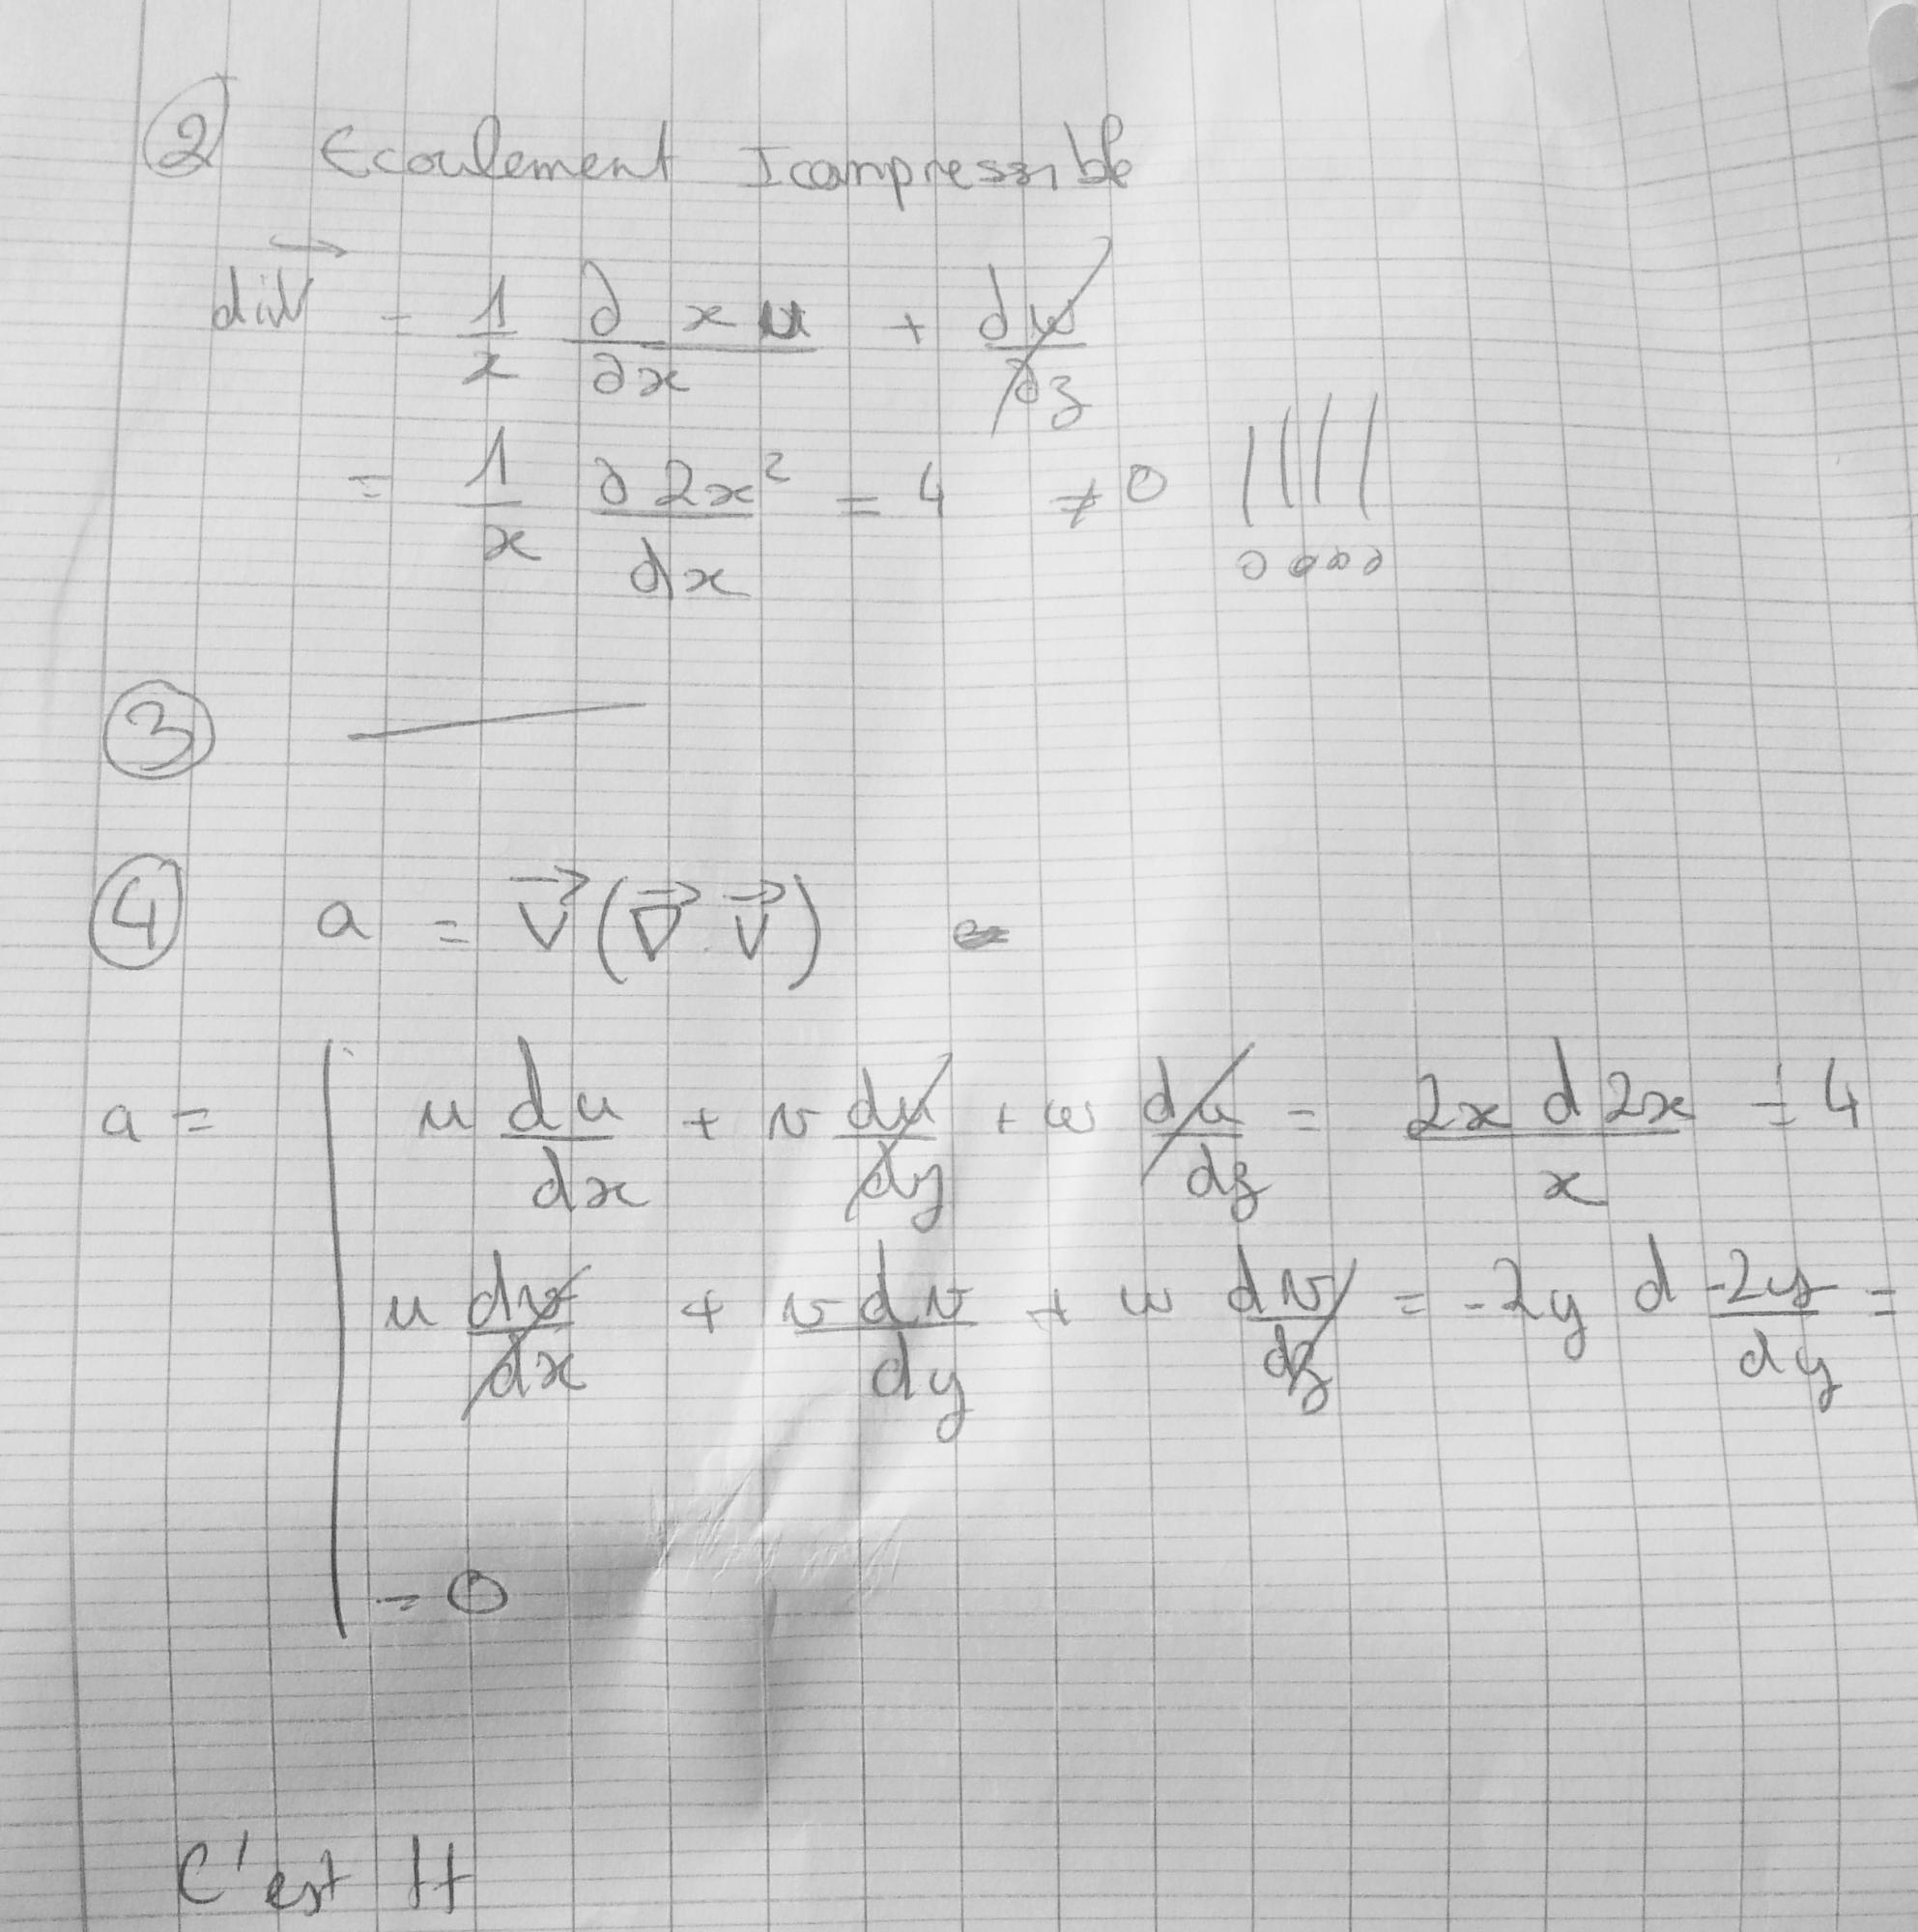 ② Ecoulement Icompressible
div = 1/x ∂ x u/∂x + ∂w/∂z
= 1/x ∂ 2x²/dx = 4 ≠ 0 !!!!
③
④ a = V⃗(∇⃗.V⃗)
a = | u du/dx + v du/dy + w du/dz = 2x d 2x/x = 4
u dv/dx + v dv/dy + w dv/dz = -2y d -2y/dy =
= 0
C'est